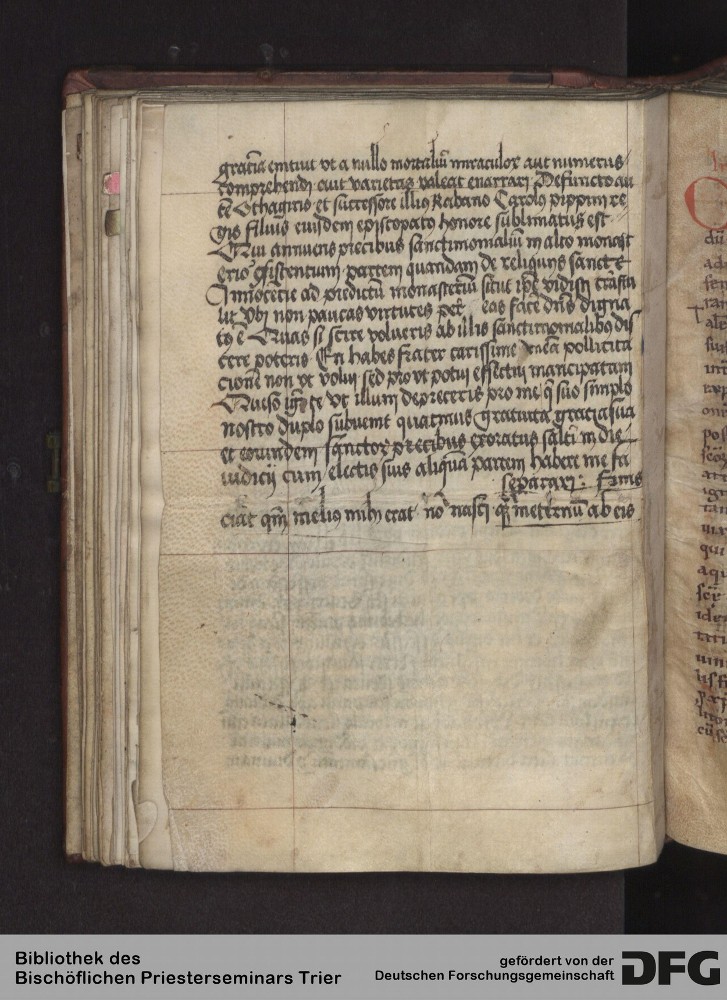 gracia emicuit vt a nullo mortaliū miraculoꝝ aut numerus
comprehendi aut varietas valeat enarrari Defuncto au
tē Othagrio et successore illiꝰ Rabano Carolꝰ pippini re
gis filiꝰ eiusdem episcopatꝰ honore sublimatus est
Qui annuens precibus sanctimonialiū in alto monast
erio ꝯsistentium partem quandam de reliquijs sancte
Innocetie ad predictū monasteriū sicut ip̄e vidisti trāstu
lit Vbi non paucas virtutes per eas facē dn̄s digna
tꝰ ē Quas si scire volueris ab illis sanctimonialibꝰ dis
cere poteris En habes frater carissime mea pollicita
cione non vt volui sed pro vt potui effectui mancipatam
Queso ig̃ te vt illum depreceris pro me q̇ suo simplo
nostro duplo subuenit quatinus gratuita gracia sua
et eorundem sanctoꝝ precibus exoratus saltī in die
iudicij cum electis suis aliquā partem habere me fa
separari : Finis
ciat qm̄ meliꝰ mihi erat nō nasci qȝ in eternū ab eis
ad
qui
Bibliothek des
Bischöflichen Priesterseminars Trier
gefördert von der
Deutschen Forschungsgemeinschaft
DFG